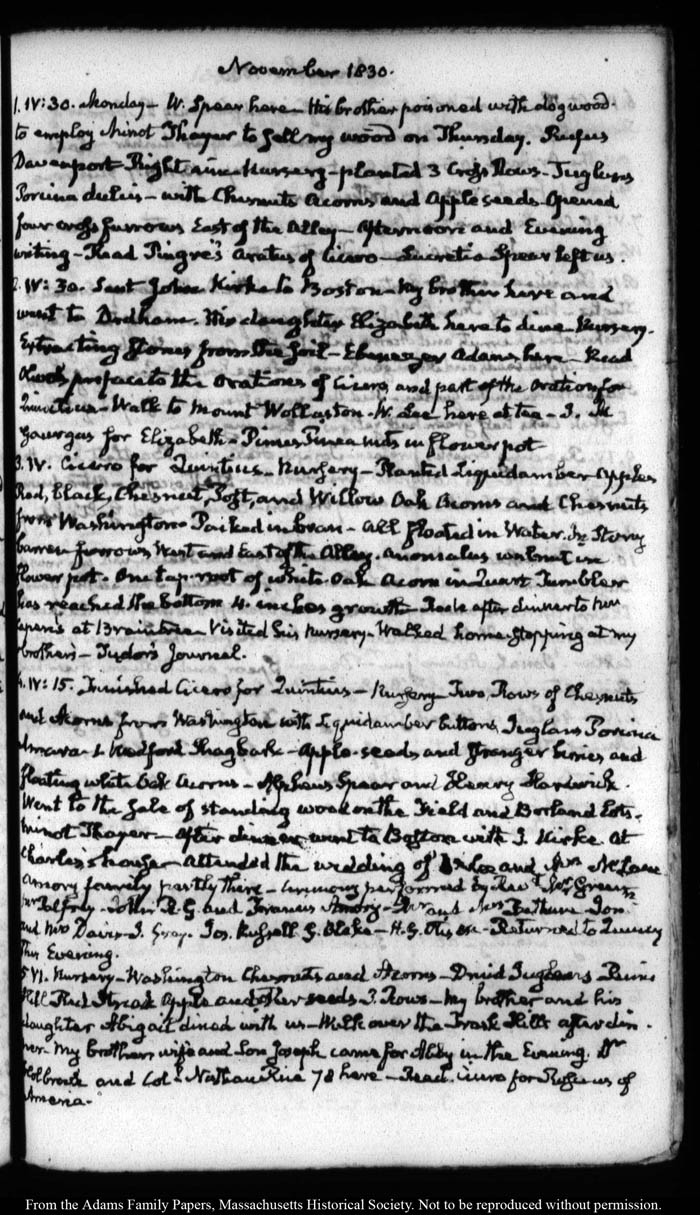 November 1830.
1. IV: 30. Monday – W. Spear here – His brother poisoned with dogwood.
to employ Minot Thayer to sell my wood on Thursday. Rufus
Davenport Nursery – planted 3 Cross Rows – Juglans
Porcina dulcis – with Chesnuts Acorns and Apple seeds – Opened
four cross furrows East of the Alley – Afternoon and Evening
writing – Read Pingré's Aratus of Cicero – Lucretia Spear left us.
2. IV: 30. Sent John Kirke to Boston – My brother here and
went to Dedham. His daughter Elizabeth here to dine – Nursery.
Extracting Stones from the soil – Ebenezer Adams here – Read
Olivet's preface to the Orations of Cicero and part of the Oration for
Quintius – Walk to Mount Wollaston – W. Lee here at tea – I.
for Elizabeth – nuts in flower pot –
3. IV. Cicero for Quintius – Nursery – Planted Liquidamber Apples
Red, black, Chesnut, Post, and Willow Oak Acorns and Chesnuts
from Washington – Packed in bran – All floated in Water. In Stony
barren furrows West and East of the Alley. Anomalus walnut in
flower pot. One tap-root of white Oak Acorn in Quart Tumbler
has reached the bottom 4. inches growth – Rode after dinner to
at Braintree – Visited his Nursery – Walked home stopping at my
brother's – Tudor's Journal.
4. IV: 15. Finished Cicero for Quintius – Nursery Two, Rows of Chesnuts
and Acorns from Washington with Liquidamber buttons, Juglans Porcina
Amara – & Medford Shagbark – Apple-seeds and stranger berries and
floating white Oak Acorns – Alpheus Spear and Henry Hardwick.
Went to the Sale of standing wood on the Field and Borland Lots.
Minot Thayer – After dinner went to Boston with I. Kirke. At
Charles's house – attended the wedding of and Mrs McLane
Amory family partly there – ceremony performed by Revd
Mr Palfrey – John R. G. and Francis Amory – Mr and Mrs Bethune Jon.
and Mrs Davis – I. Gray. Jos. Russell G. Blake – H. G. Otis – Returned to Quincy
this Evening.
5 VI. Nursery – Washington Chesnuts and Acorns – Druid Juglans
Hill Red Streak Apple and other seeds 3. Rows – My brother and his
daughter Abigail dined with us – Walk over the Hills after din-
ner – My brother's wife and Son Joseph came for Abby in the Evening. Dr
Holbrook and Coll. Nathan Rice 78 here – Read. Cicero for Roscius of
Ameria. –
From the Adams Family Papers, Massachusetts Historical Society. Not to be reproduced without permission.